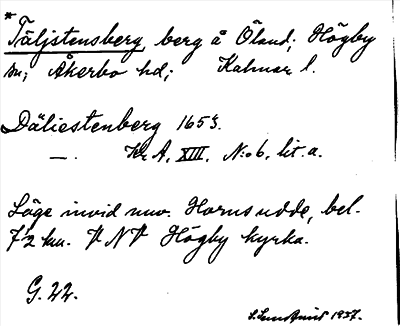 * Täljstensberg, berg å Öland; Högby
sn; Åkerbo hd; Kalmar l.
Däliestenberg 1653.
—. Kr. A, XIII, N:o 6, lit. a.
Läge invid nuv. Hornsudde, bel.
72 km. V NV Högby kyrka.
G. 22.
1937.